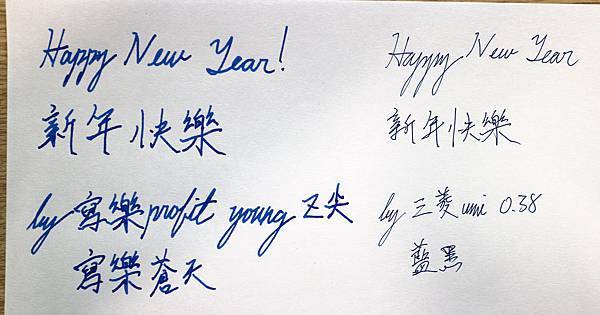 Happy New Year!
新年快樂
by 寫樂 profit young Z尖
寫樂蒼天
Happy New Year
新年快樂
by 三菱 uni 0.38
藍黑